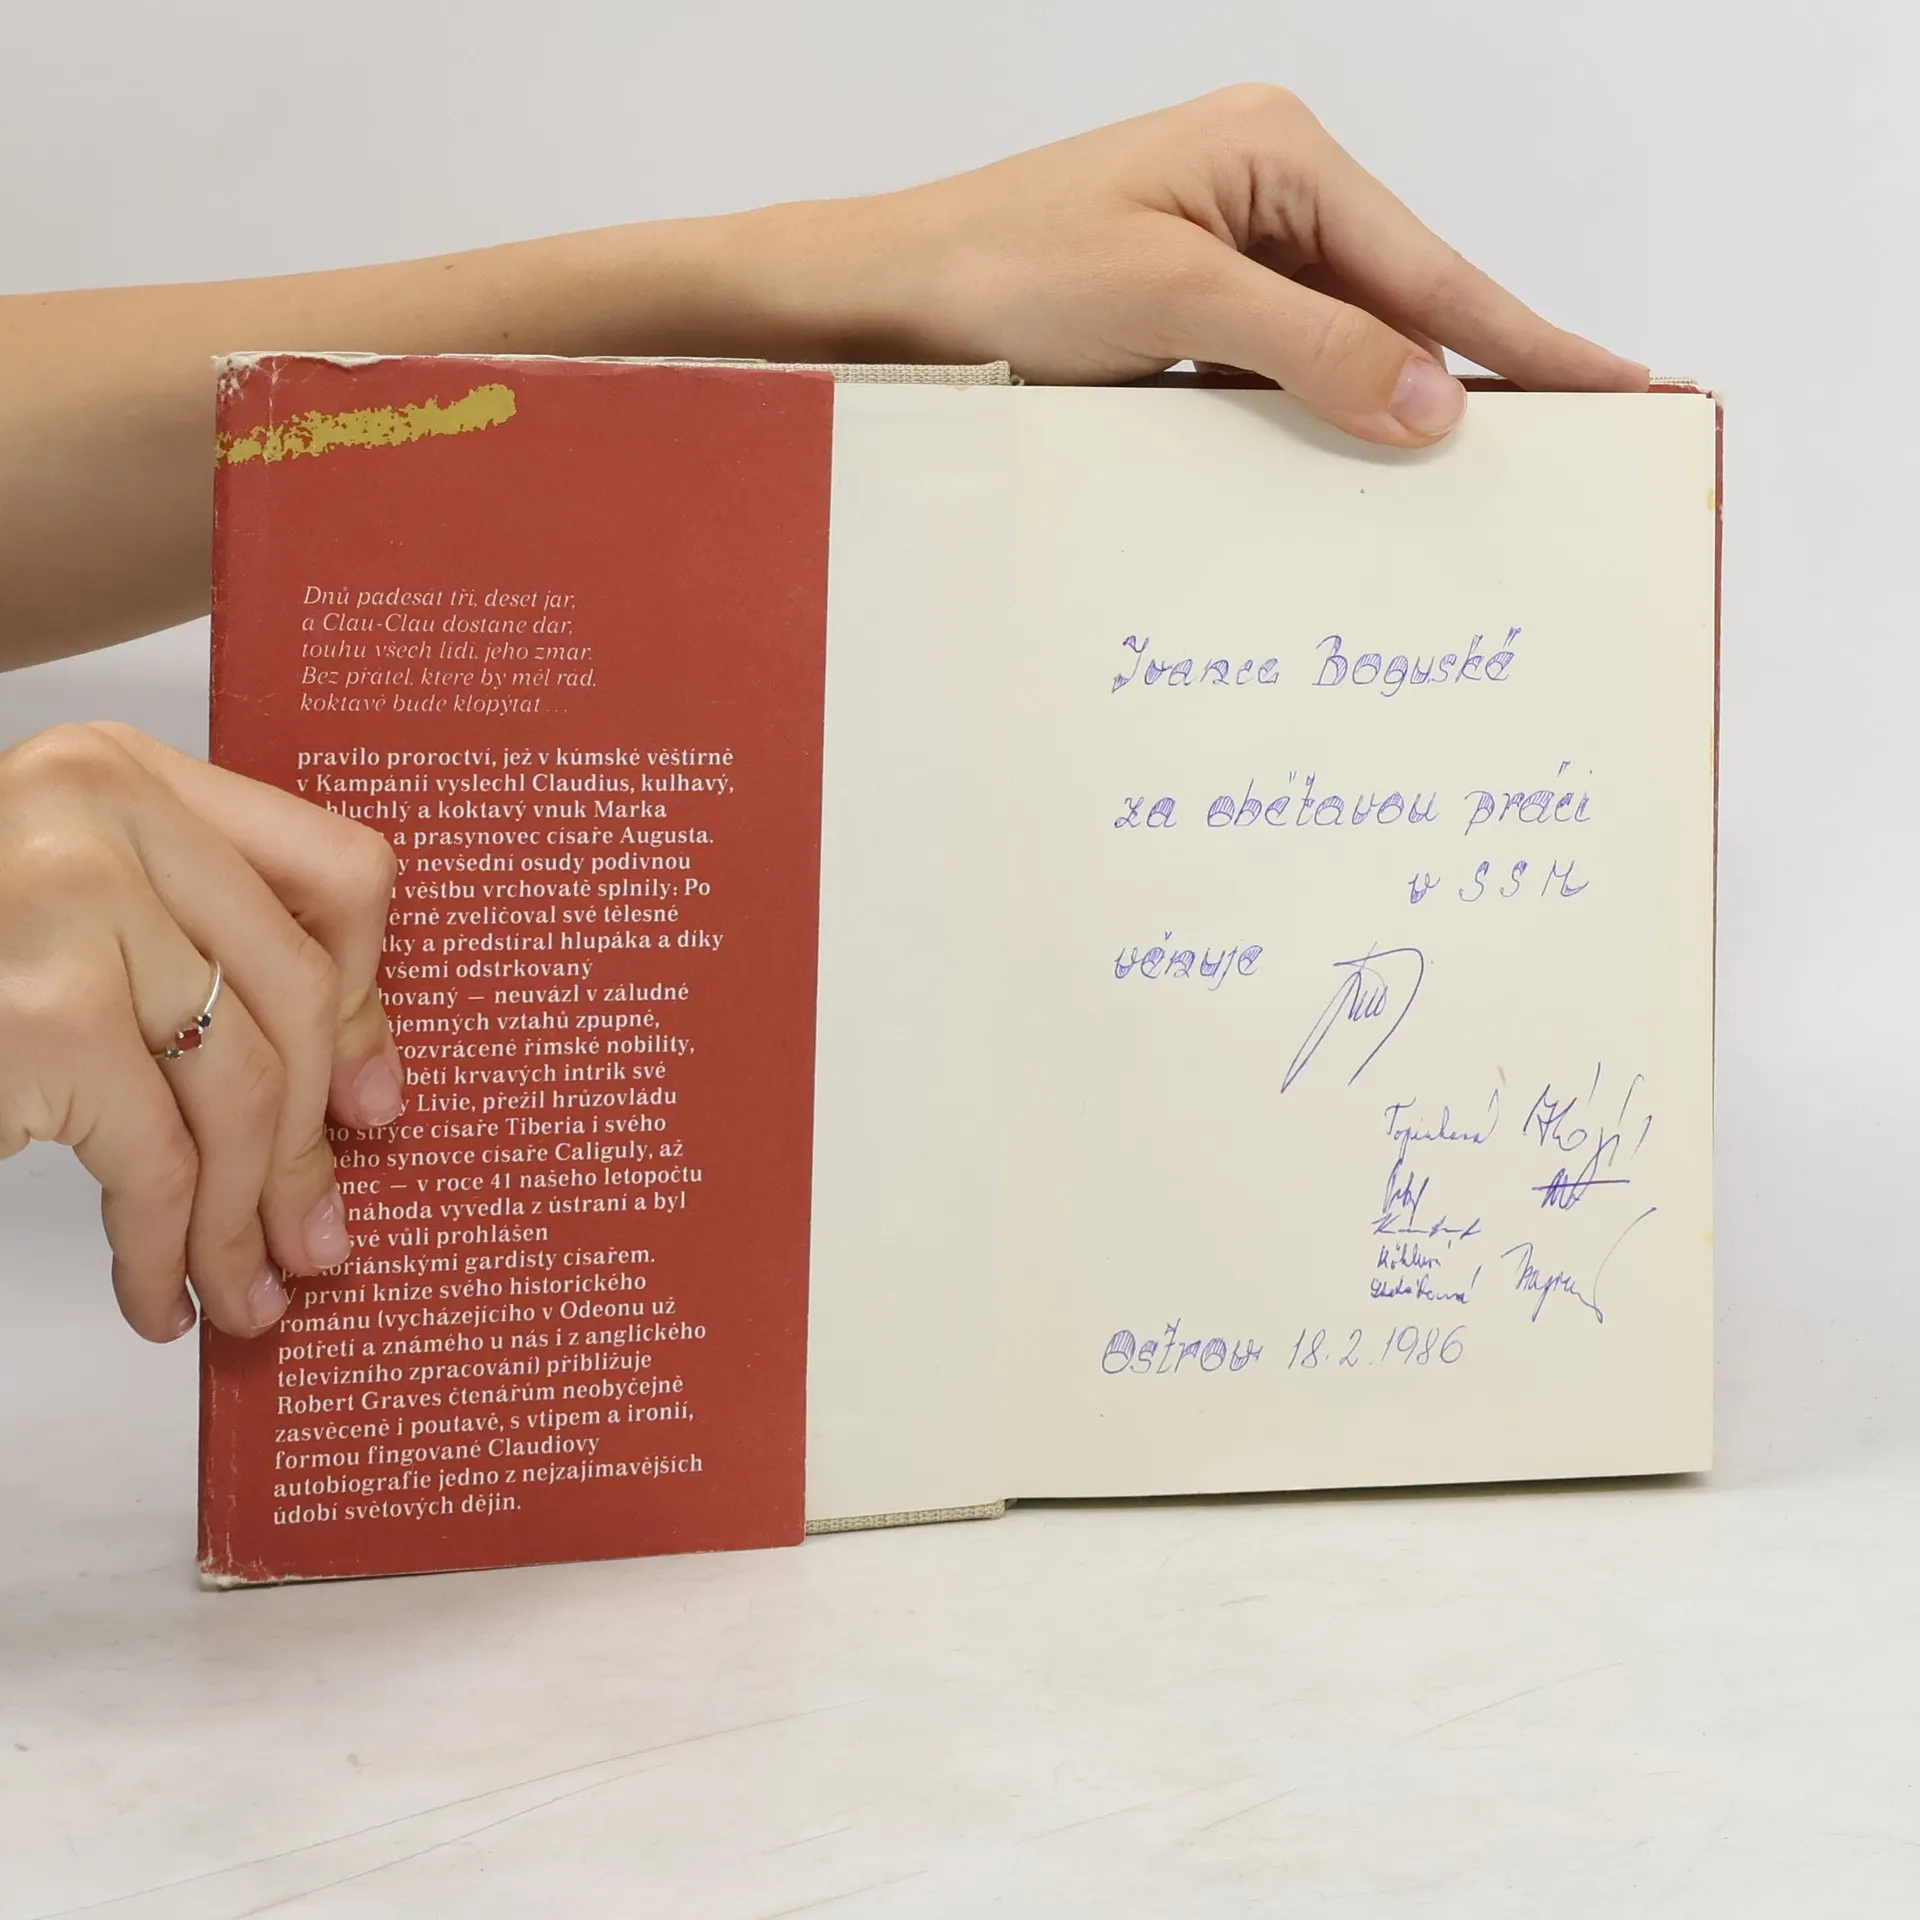 Dnů padesát tři, deset jar,
a Clau-Clau dostane dar,
touhu všech lidí, jeho zmar.
Bez přátel, které by měl rád,
koktavě bude klopýtat ...
pravilo proroctví, jež v kúmské věštírně
v Kampánii vyslechl Claudius, kulhavý,
hluchlý a koktavý vnuk Marka
a prasynovec císaře Augusta.
y nevšední osudy podivnou
věštbu vrchovatě splnily: Po
ěrně zveličoval své tělesné
tky a předstíral hlupáka a díky
všemi odstrkovaný
hovaný — neuvázl v záludné
ájemných vztahů zpupné,
rozvrácené římské nobility,
bětí krvavých intrik své
y Livie, přežil hrůzovládu
ho strýce císaře Tiberia i svého
ného synovce císaře Caliguly, až
onec — v roce 41 našeho letopočtu
náhoda vyvedla z ústraní a byl
své vůli prohlášen
toriánskými gardisty císařem.
V první knize svého historického
románu (vycházejícího v Odeonu už
potřetí a známého u nás i z anglického
televizního zpracování) přibližuje
Robert Graves čtenářům neobyčejně
zasvěceně i poutavě, s vtipem a ironií,
formou fingované Claudiovy
autobiografie jedno z nejzajímavějších
údobí světových dějin.
Ivance Boguské
za obětavou práci
v SSM
věnuje
Ostrov 18.2.1986